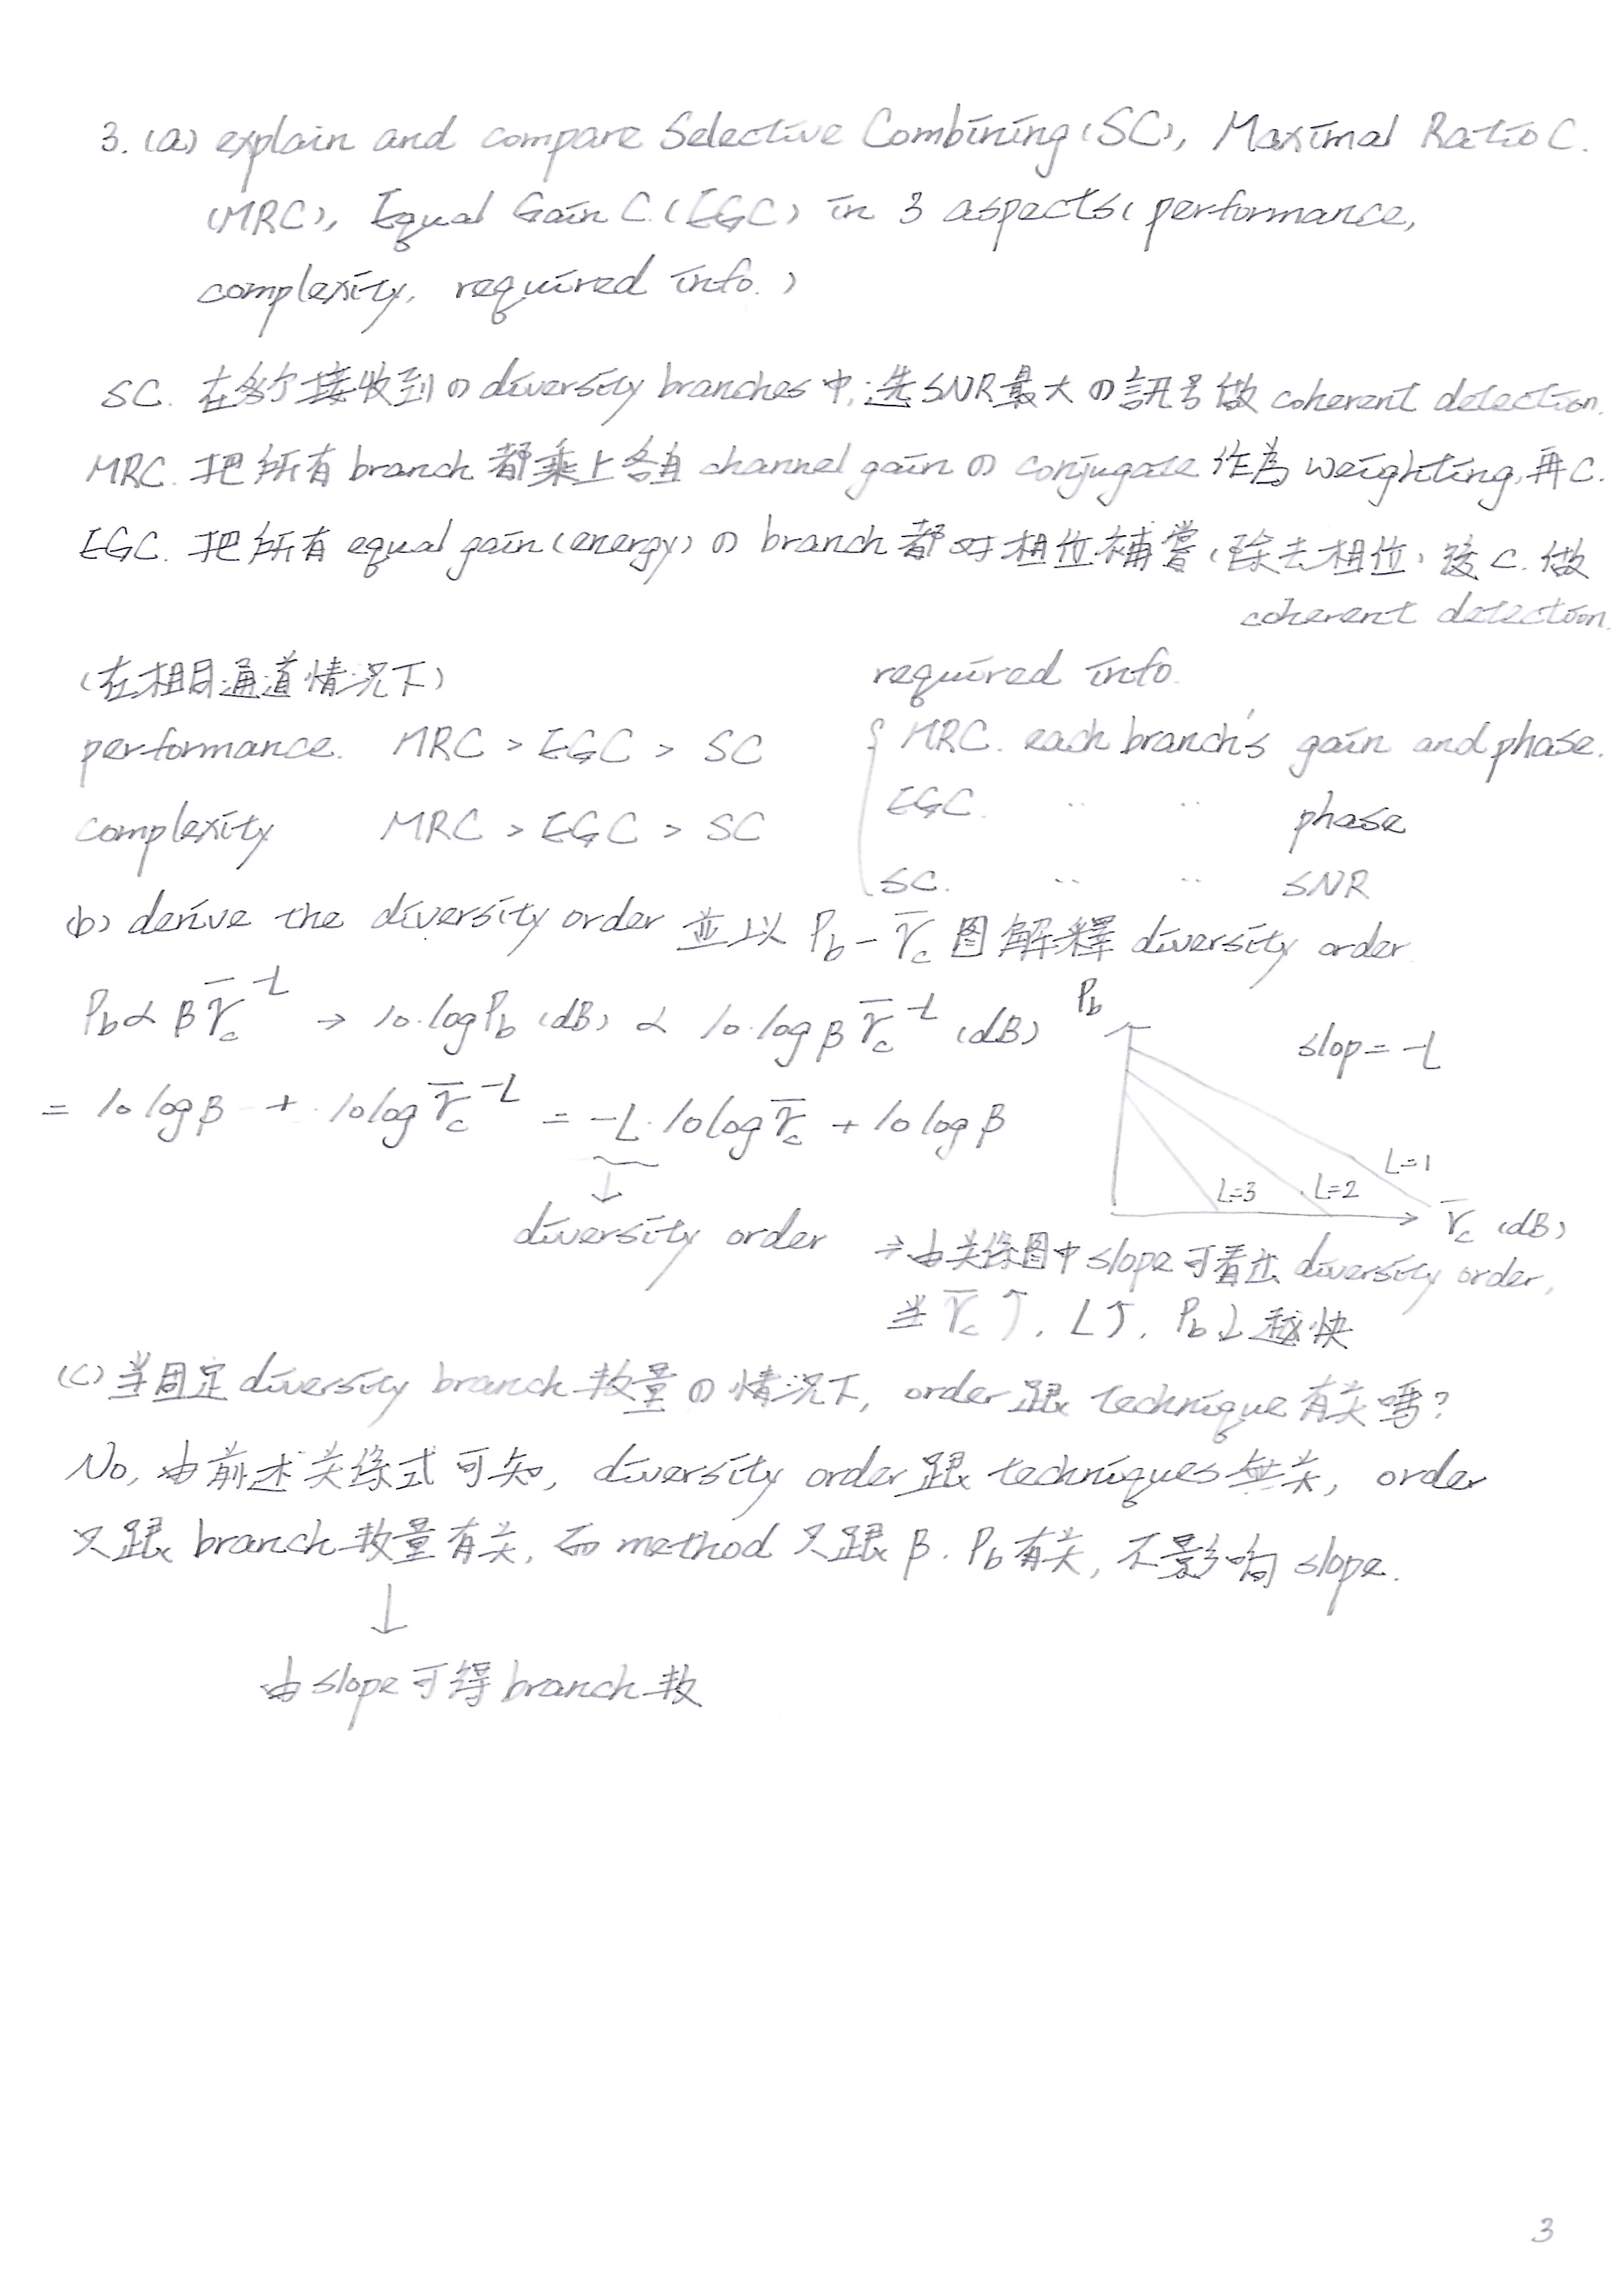 3. (a) explain and compare Selective Combining (SC), Maximal Ratio C.
(MRC), Equal Gain C. (EGC) in 3 aspects ( performance,
complexity, required info. )
SC. 在多个接收到の diversity branches 中, 选 SNR 最大の訊号做 coherent detection.
MRC. 把所有 branch 都乘上各自 channel gain の conjugate 作為 weighting, 再 C.
EGC. 把所有 equal gain (energy) の branch 都对相位補嘗 (除去相位) 後 C. 做
coherent detection.
(在相同通道情況下)
performance. MRC > EGC > SC
complexity MRC > EGC > SC
required info.
MRC. each branch's gain and phase.
EGC. 〃 〃 phase
SC. 〃 〃 SNR
(b) derive the diversity order 並以 Pb - γ̄c 图解釋 diversity order.
Pb ∝ β γ̄c^-L → 10·log Pb (dB) ∝ 10·log β γ̄c^-L (dB)
= 10 log β + 10 log γ̄c^-L = -L·10 log γ̄c + 10 log β
↓
diversity order
Pb
slop = -L
L=1
L=2
L=3
γ̄c (dB)
⇒ 由关係图中 slope 可看出 diversity order,
当 γ̄c ↑, L↑, Pb ↓ 越快
(c) 当固定 diversity branch 数量の情況下, order 跟 technique 有关嗎?
No, 由前述关係式可知, diversity order 跟 techniques 無关, order
只跟 branch 数量有关, 而 method 只跟 β. Pb 有关, 不影响 slope.
↓
由 slope 可得 branch 数
3